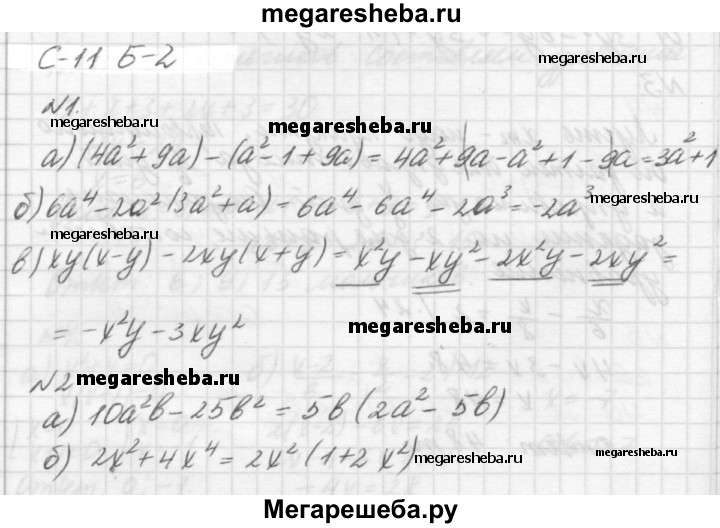 megaresheba.ru
С-11 Б-2
megaresheba.ru
№1.
megaresheba.ru
megaresheba.ru
а) (4a²+9a)-(a²-1+9a)=4a²+9a-a²+1-9a=3a²+1
б) 6a⁴-2a²(3a²+a)=6a⁴-6a⁴-2a³=-2a³
megaresheba.ru
megaresheba.ru
в) xy(x-y)-2xy(x+y)=x²y-xy²-2x²y-2xy²=
=-x²y-3xy²
megaresheba.ru
№2
megaresheba.ru
а) 10a²b-25b²=5b(2a²-5b)
б) 2x²+4x⁴=2x²(1+2x²)
megaresheba.ru
megaresheba.ru
Мегарешеба.ру